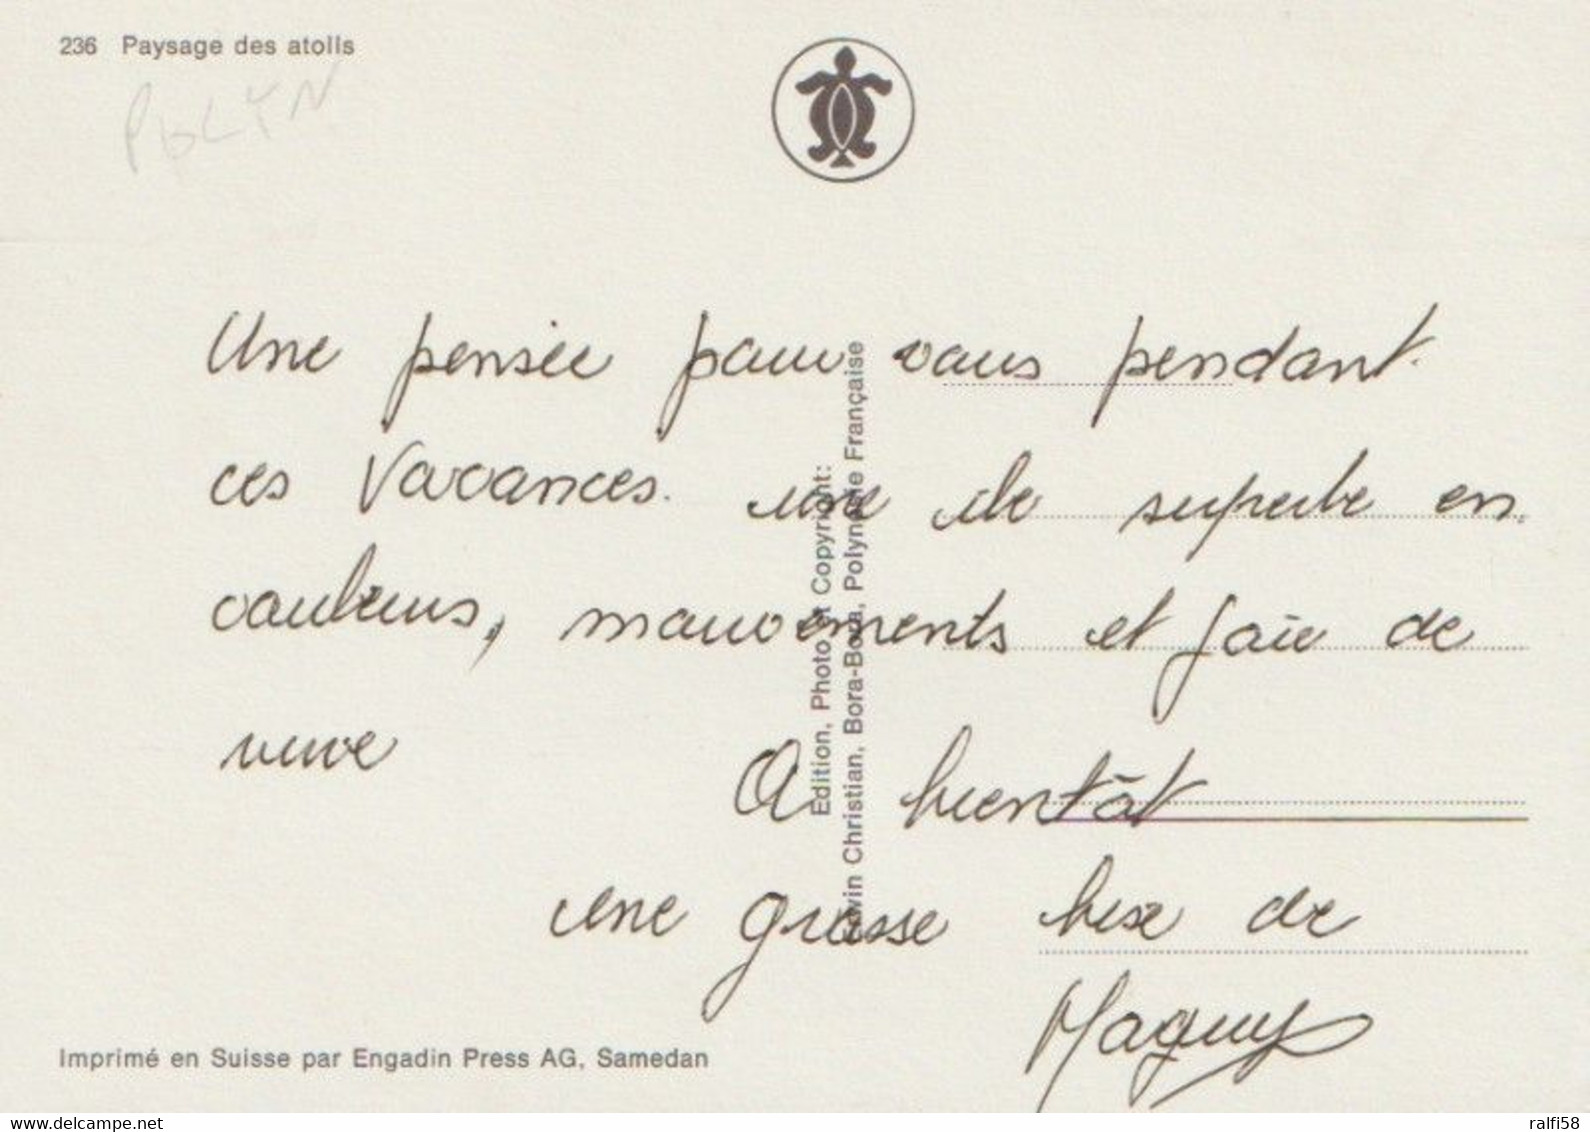 236 Paysage des atolls
POLYN
Une pensée pour vous pendant
ces Vacances. une ile superbe en
couleurs, mouvements et joie de
vivre
A bientôt
une grosse bise de
Maguy
Edition, Photo et Copyright:
Erwin Christian, Bora-Bora, Polynésie Française
Imprimé en Suisse par Engadin Press AG, Samedan
www.delcampe.net
ralfi58